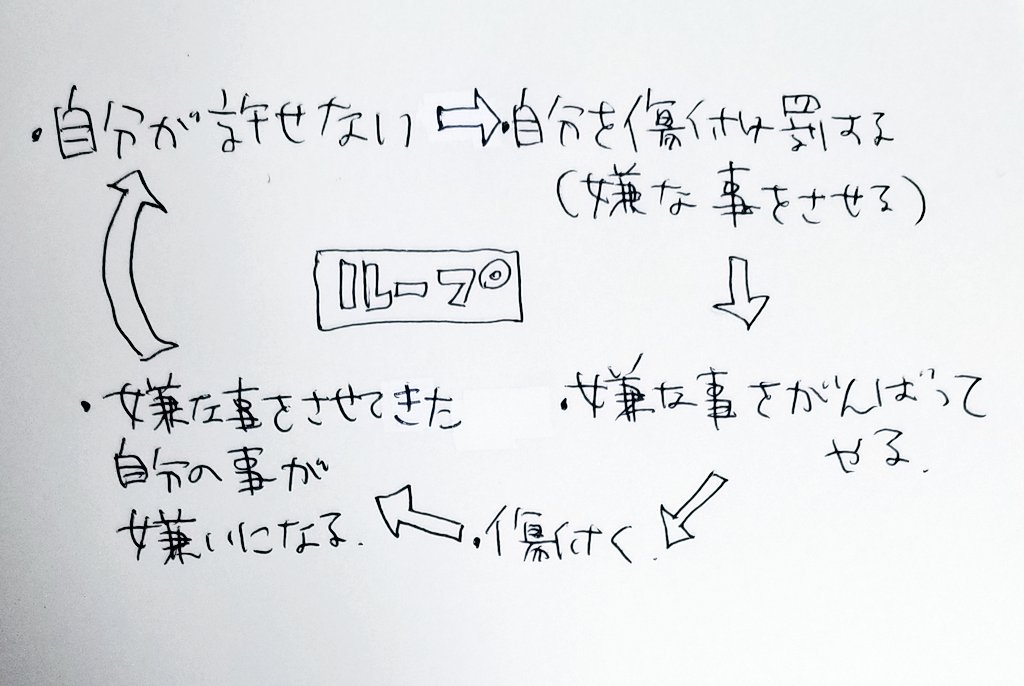 ・自分が許せない ⇨ ・自分を傷付け罰する
(嫌な事をさせる)
ループ
・嫌な事をがんばって
やる.
・傷付く.
・嫌な事をさせてきた
自分の事が
嫌いになる.